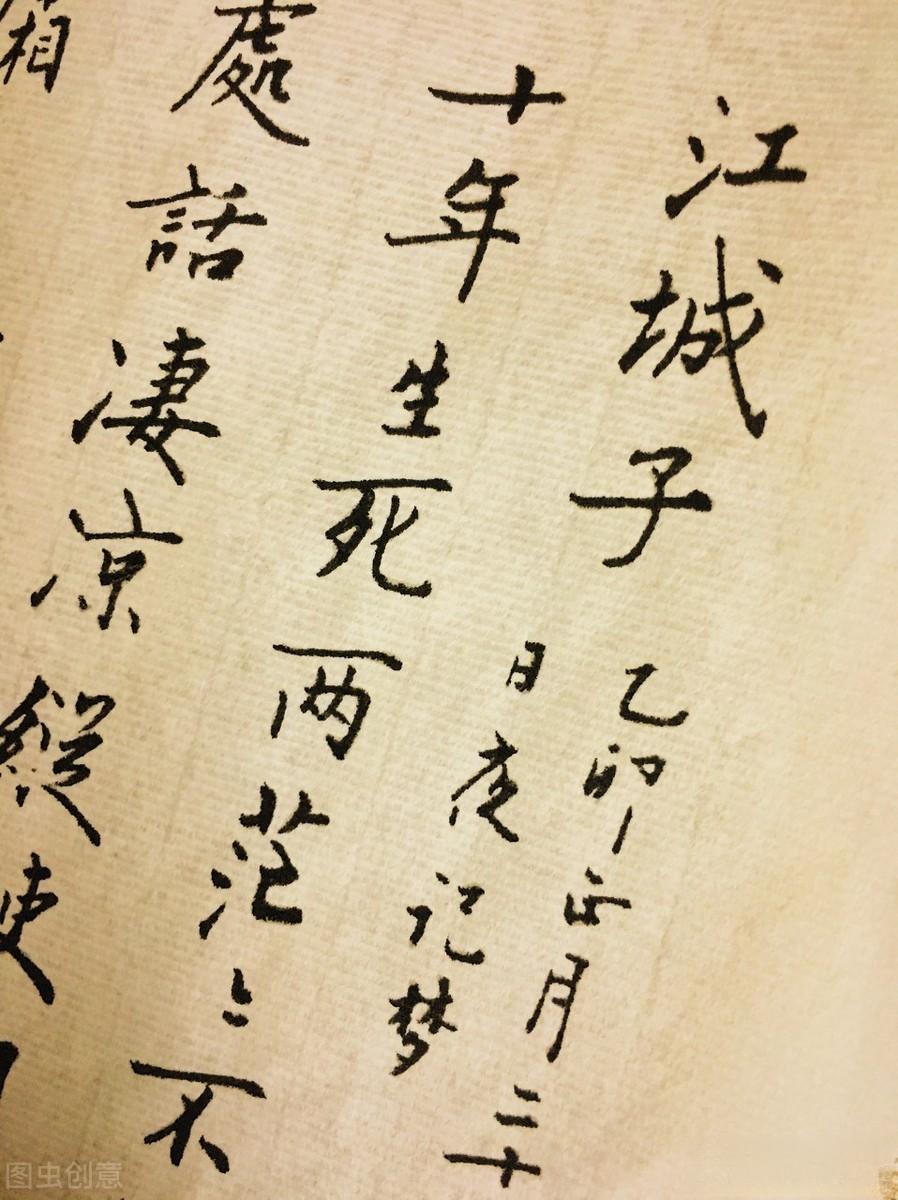 江城子
乙卯正月二十
日夜记梦
十年生死两茫〻不
處話凄凉縱使
霜
图虫创意